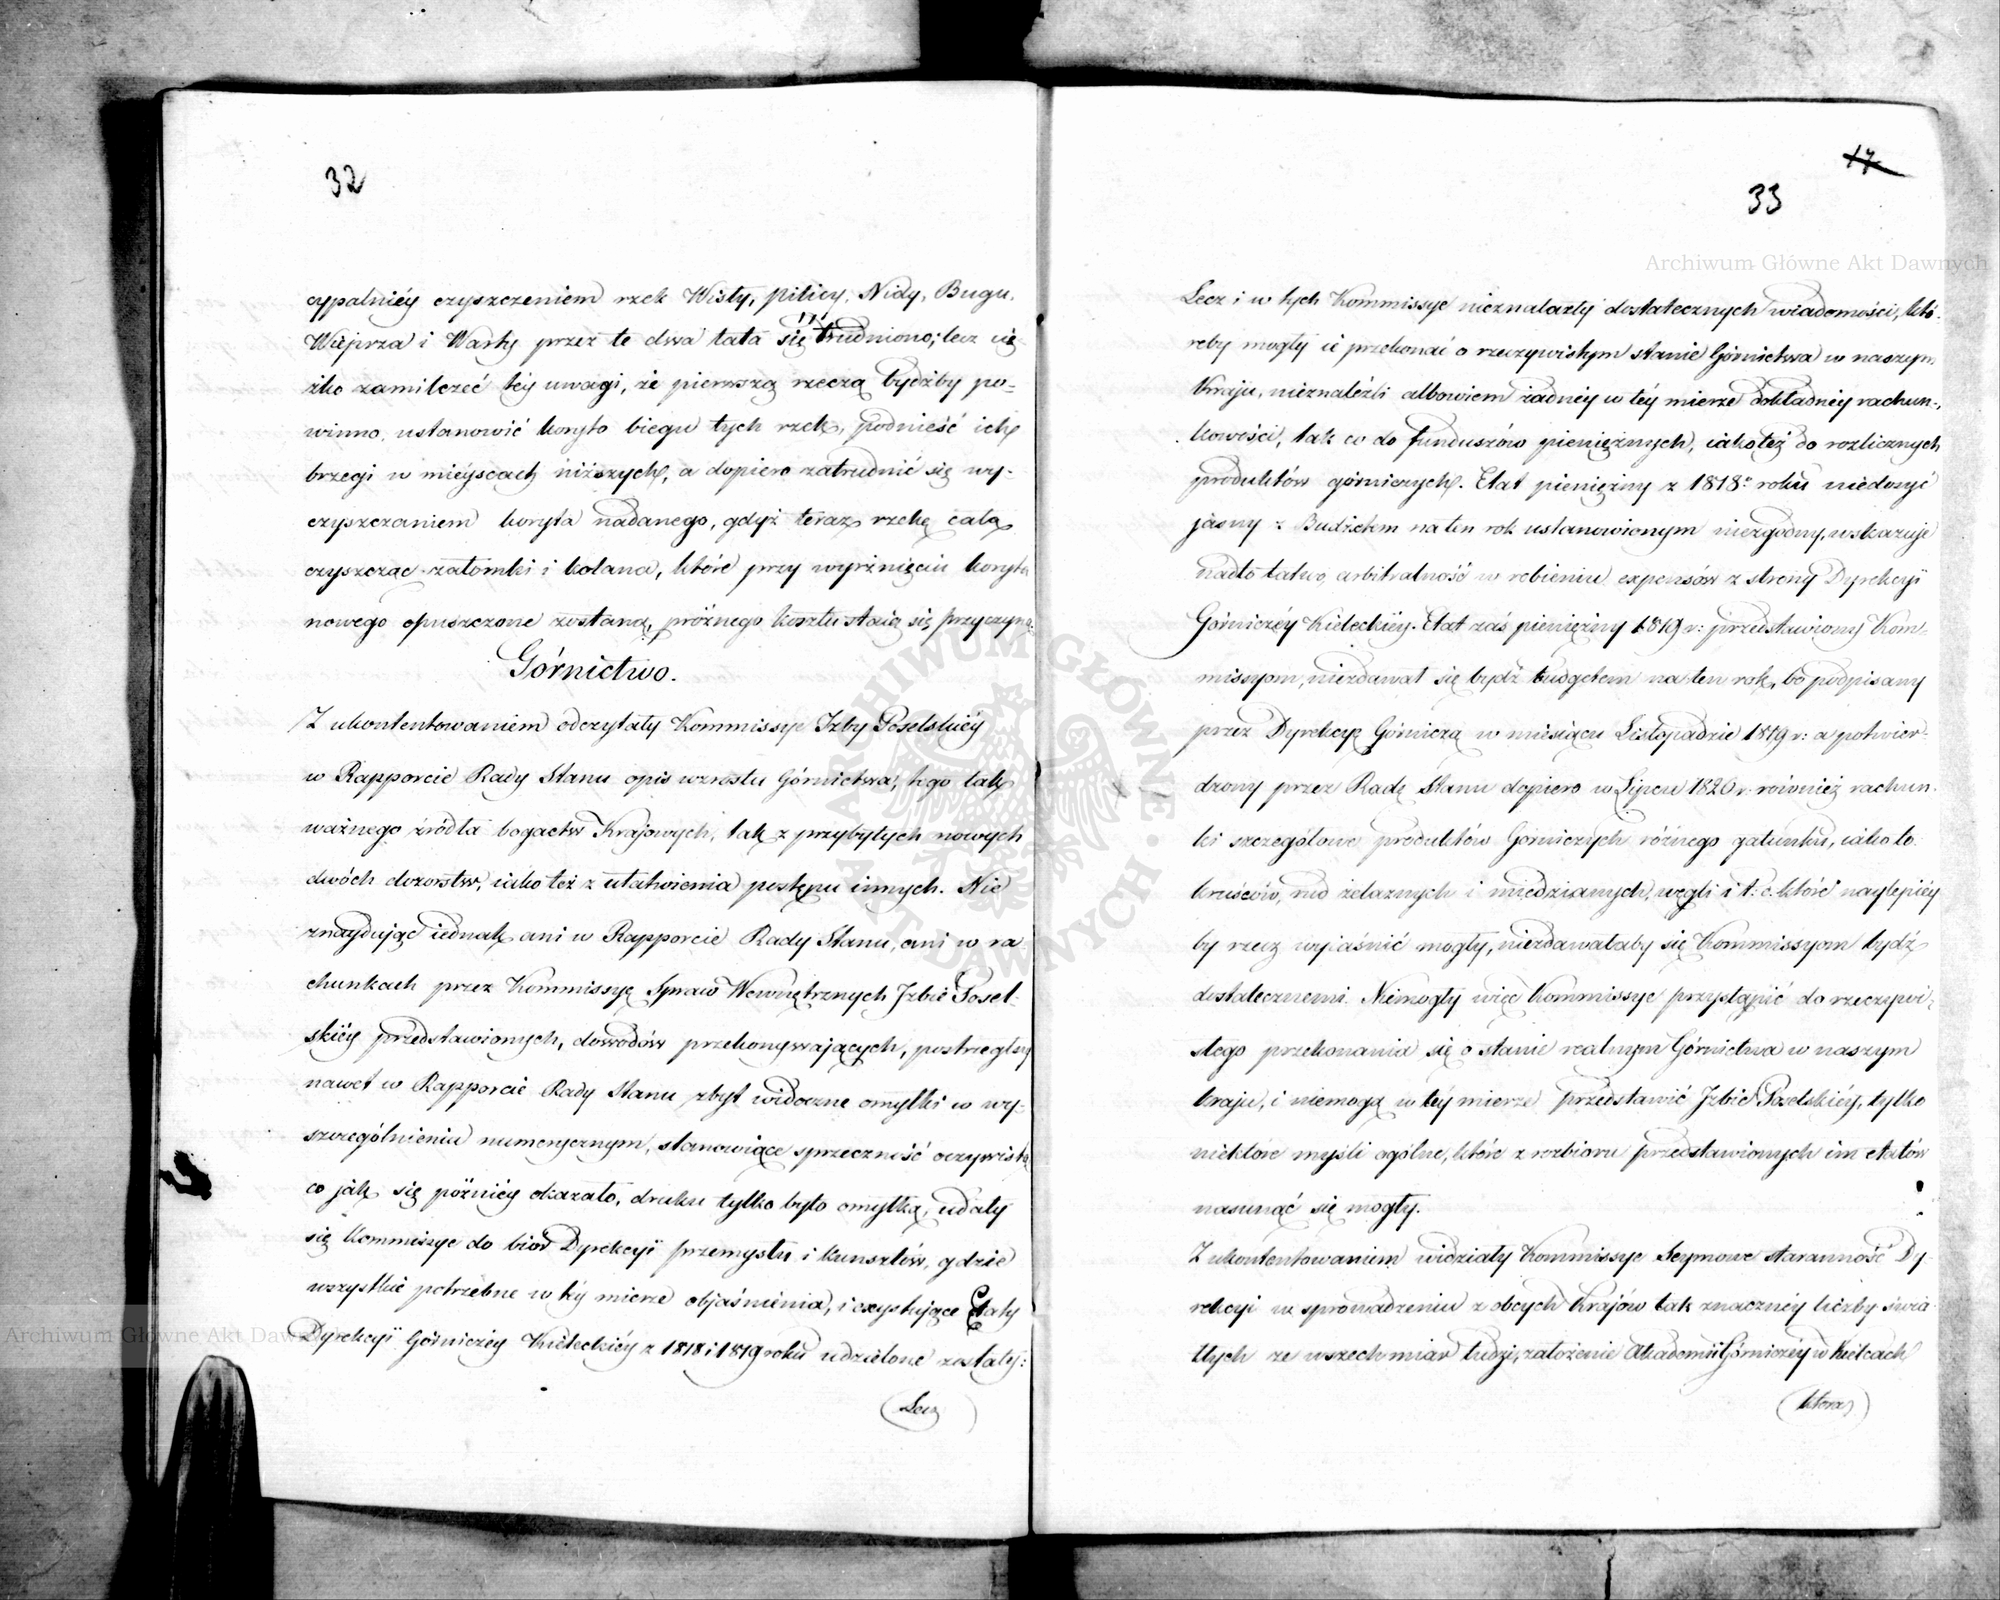 32
cypalniéy czyszczeniem rzek Wisły, pilicy, Nidy, Bugu,
Wieprza i Warty przez te dwa lata się trudniono; lecz cię-
żko zamilczeć téy uwagi, że pierwszą rzeczą bydźby po-
winno, ustanowić koryto biegu tych rzek, podnieść ich
brzegi w mieyscach niższych, a dopiero zatrudnić się wy-
czyszczaniem koryta nadanego, gdyż teraz rzekę całą
czyszcząc zatomki i kolana, które przy wyrżnięciu koryta
nowego opuszczone zostaną, próżnego kosztu staią się przyczyną
Górnictwo.
Z ukontentowaniem odczytały Kommissye Izby Poselskiéy
w Rapporcie Rady Stanu opis wzrostu Górnictwa, tego tak
ważnego źródła bogactw Krajowych, tak z przybyłych nowych
dwóch dozorstw, iako też z ułatwienia postępu innych. Nie
znaydując iednak ani w Rapporcie Rady Stanu, ani w ra
chunkach przez Kommissyę Spraw Wewnętrznych Izbie Posel-
skiéy przedstawionych, dowodów przekonywających, postrzegłszy
nawet w Rapporcie Rady Stanu zbyt widoczne omyłki w wy-
szczególnieniu numerycznym, stanowiące sprzeczność oczywistą
co jak się późniéy okazało, druku tylko było omyłką, udały
się Kommissye do biór Dyrekcyi przemysłu i kunsztów, gdzie
wszystkie potrzebne w téy mierze objaśnienia, i czyskujące Etaty
Dyrekcyi Górniczéy Kieleckiéy z 1818 i 1819 roku udzielone zostały:
(Lecz)
17
33
Lecz i w tych Kommissye nieznalazły dostatecznych wiadomości, któ-
reby mogły ie przekonać o rzeczywistym stanie Górnictwa w naszym
Kraju, nieznaleźli albowiem żadnéy w téy mierze dokładnéy rachun-
kowości, tak co do funduszów pieniężnych, iako też do rozlicznych
produktów górniczych. Etat pieniężny z 1818o roku niedosyć
jasny z Budżetem na ten rok ustanowionym niezgodny, wskazuje
nadto łatwo arbitralność w robieniu expensów z strony Dyrekcyi
Górniczéy Kieleckiéy. Etat zaś pieniężny 1819 r: przedstawiony Kom-
missyom, niezdawał się bydź budgetem na ten rok, bo podpisany
przez Dyrekcyę Górniczą w miesiącu Listopadzie 1819 r: a potwier-
dzony przez Radę Stanu dopiero w Lipcu 1820 r. również rachun-
ki szczegółowe produktów Górniczych różnego gatunku, iako to
kruśców, rud żelaznych i miedzianych, węgli i t: d: które naylepiéy
by rzecz wyiaśnić mogły, niezdawałaby się Kommissyom bydź
dostatecznemi. Niemogły więc Kommissye przystąpić do rzeczywi-
stego przekonania się o stanie realnym Górnictwa w naszym
kraju, i niemogą w téy mierze przedstawić Izbie Poselskiéy, tylko
niektóre myśli ogólne, które z rozbioru przedstawionych im etatów
nasunąć się mogły.
Z ukontentowaniem widziały Kommissye Seymowe staranność Dy-
rekcyi w sprowadzeniu z obcych Krajów tak znacznéy liczby świa
tłych ze wszech miar ludzi, założenie Akademii Górniczéy w Kielcach
(która)
Archiwum Główne Akt Dawnych
Archiwum Główne Akt Dawnych
ARCHIWUM GŁÓWNE AKT DAWNYCH